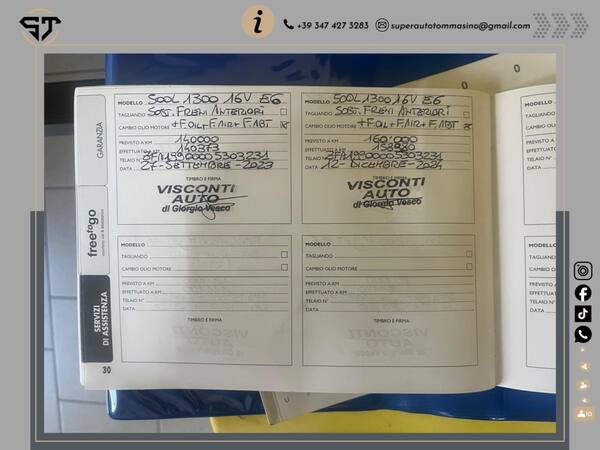 ST
i
+39 347 427 3283
superautotommasino@gmail.com
GARANZIA
freetogo
SERVIZI
DI ASSISTENZA
MODELLO 500L 1300 16V E6
TAGLIANDO SOST. FRENI ANTERIORI
CAMBIO OLIO MOTORE +F.OIL+FAIR+F.ABT
PREVISTO A KM 140000
EFFETTUATO A KM 140373
TELAIO N°
DATA 27-SETTEMBRE-2023
TIMBRO E FIRMA
VISCONTI
AUTO
di Giorgio Vesco
MODELLO 500L 1300 16V E6
TAGLIANDO SOST. FRENI ANTERIORI
CAMBIO OLIO MOTORE +F.OIL+FAIR+F.ABT
PREVISTO A KM 160.000
EFFETTUATO A KM
TELAIO N°
DATA 12-DICEMBRE-2024
TIMBRO E FIRMA
VISCONTI
AUTO
di Giorgio Vesco
MODELLO
TAGLIANDO
CAMBIO OLIO MOTORE
PREVISTO A KM
EFFETTUATO A KM
TELAIO N°
DATA
TIMBRO E FIRMA
MODELLO
TAGLIANDO
CAMBIO OLIO MOTORE
PREVISTO A KM
EFFETTUATO A KM
TELAIO N°
DATA
TIMBRO E FIRMA
30